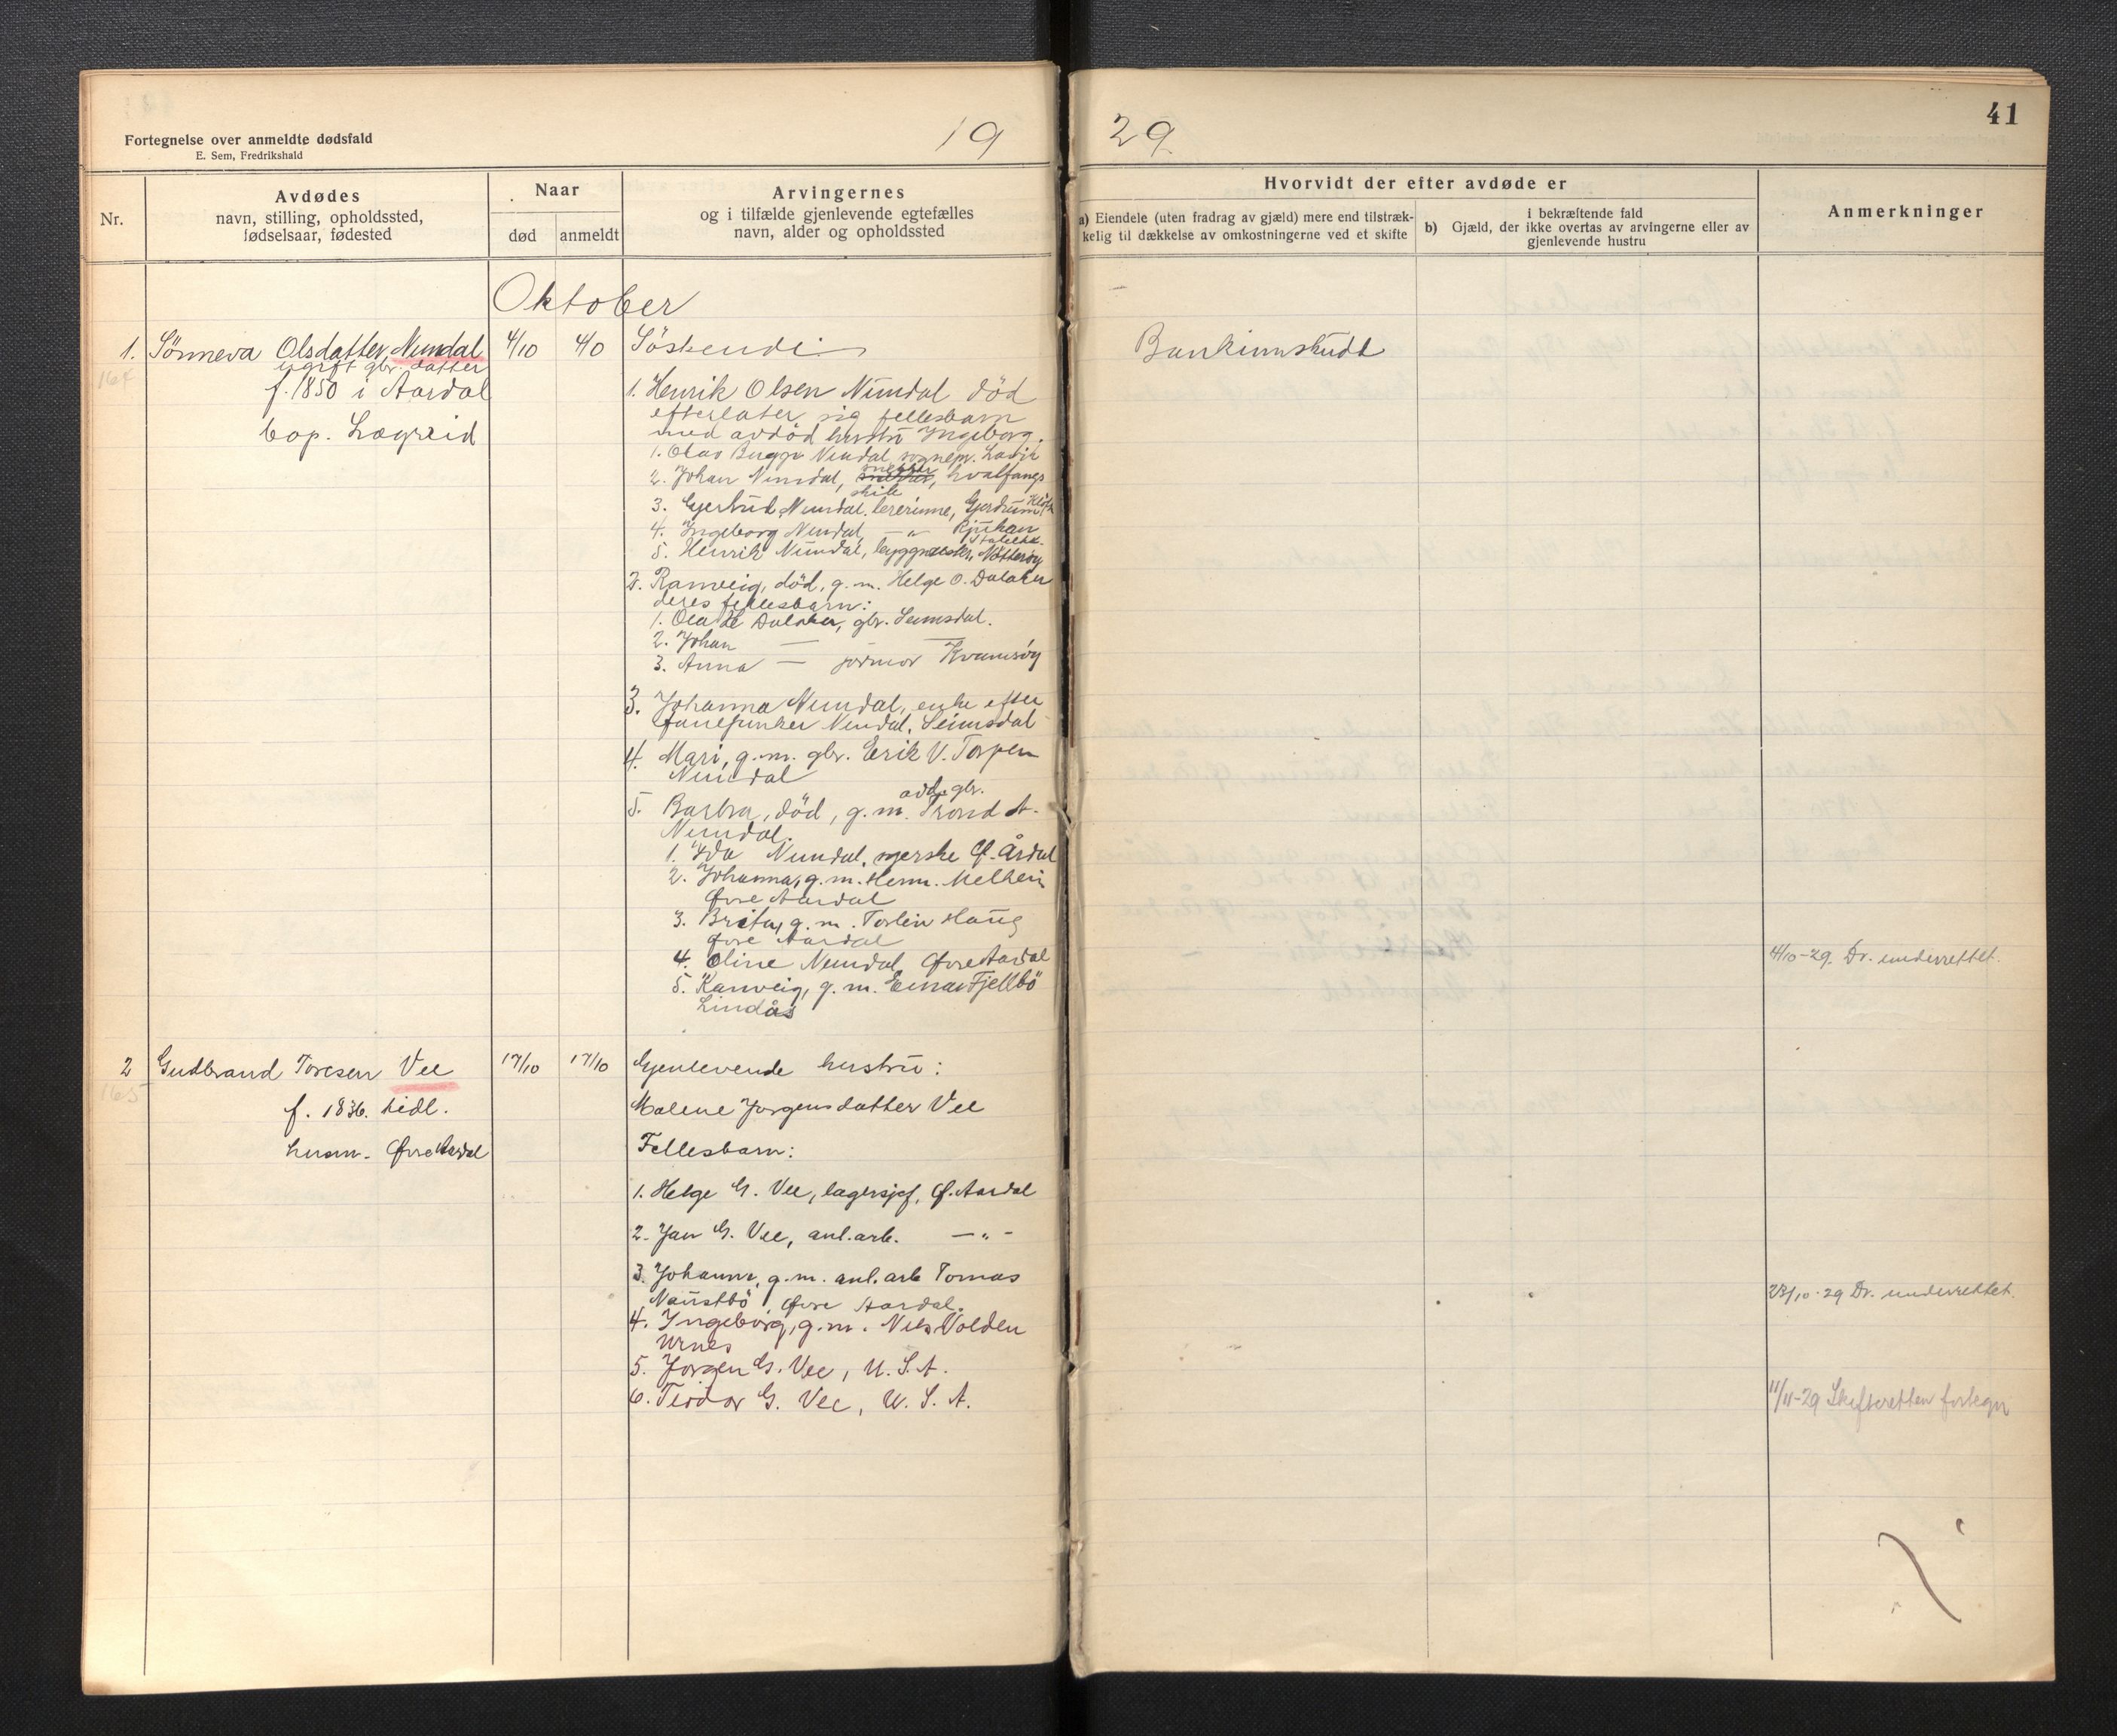 Fortegnelse over anmeldte dødsfald
E. Sem, Fredrikshald
19
29
41
Nr.
Avdødes
navn, stilling, opholdssted,
fødselsaar, fødested
Naar
død
anmeldt
Arvingernes
og i tilfælde gjenlevende egtefælles
navn, alder og opholdssted
Hvorvidt der efter avdøde er
a) Eiendele (uten fradrag av gjæld) mere end tilstræk-
kelig til dækkelse av omkostningerne ved et skifte
i bekræftende fald
b) Gjæld, der ikke overtas av arvingerne eller av
gjenlevende hustru
Anmerkninger
Oktober
1. Sönneva Olsdatter Nundal
ugift gbr. datter
164
f. 1850 i Aardal
bop. Lægreid
4/10
4/10
Söskende
Bankinnskudd
1. Henrik Olsen Nundal død
efterlater sig fellesbarn
med avdöd hustru Ingeborg.
1. Olav Bugge Nundal, sognepr. Lavik
2. Johan Nundal, hvalfangs
skib
3. Gjertrud Nundal. lererinne, Gjerdrum
4. Ingeborg Nundal — " Rjukan
5. Henrik Nundal, byggmester, Nötteröy
2. Ranveig, död, g.m. Helge O. Dalaker
deres fellesbarn:
1. Ola H Dalaker, gbr. Seimsdal.
2. Johan — —
3. Anna — jormor Kvamsöy
3. Johanna Nundal, enke efter
Nundal, Seimsdal
4. Mari, g.m. gbr. Erik V. Torpen
Nundal
avd. gbr.
5. Barbra, död, g.m. Trond A.
Nundal.
1. Ida Nundal, syerske Ø. Årdal
2. Johanna, g.m. Herm. Melheim
Øvre Aardal
3. Brita, g.m. Torlein Haug
Øvre Aardal
4. Oline Nundal, Øvre Aardal
5. Ranveig, g.m. Einar Fjellbö
Lindås
4/10-29. Dr. underrettet.
2 Gudbrand Toresen Vee
165
f. 1836. tidl.
husm. Øvre Aardal
17/10
17/10
Gjenlevende hustru:
Malene Jørgensdatter Vee
Fellesbarn:
1. Helge G. Vee, lagersjef, Ø. Aardal
2. Jan G. Vee, anl.arb. — " —
3. Johanne, g.m. anl.arb Tomas
Naustbö, Øvre Aardal.
4. Ingeborg, g.m. Nils Volden
Urnes
5. Jørgen G. Vee, U.S.A.
6. Teodor G. Vee, U.S.A.
23/10-29 Dr. underrettet.
11/11-29 Skifteretten fortegn